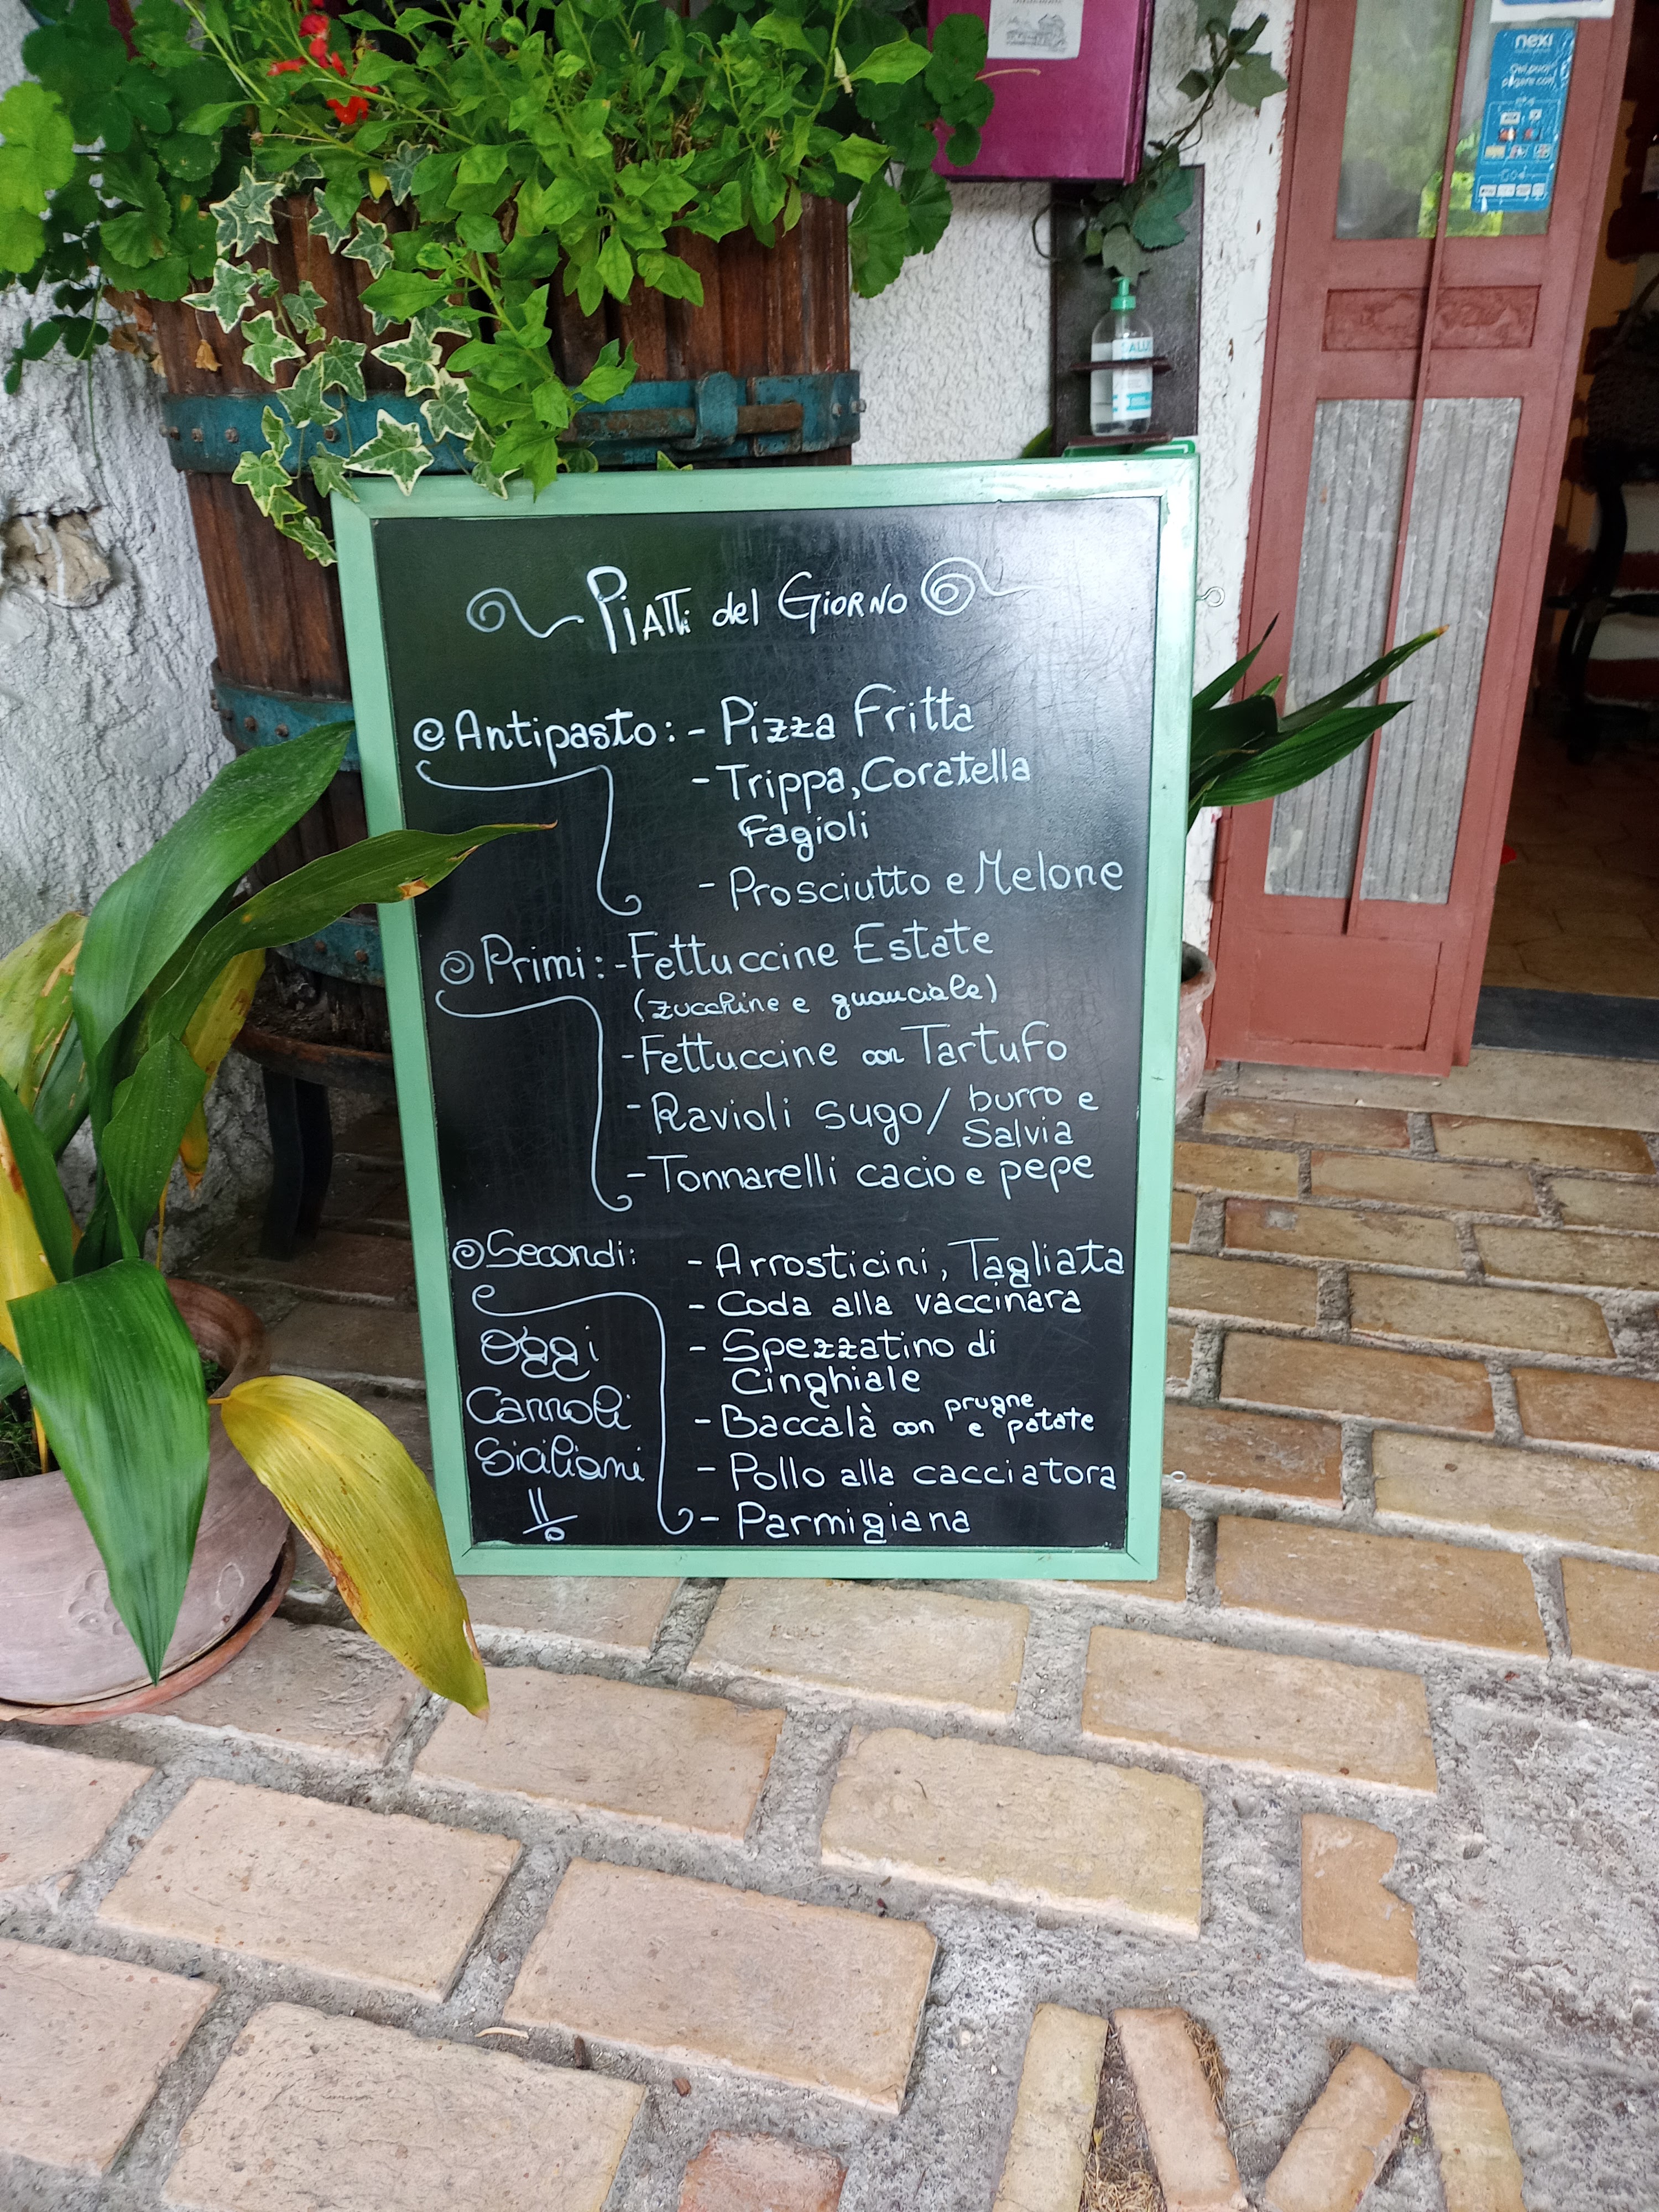 nexi
Piatti del Giorno
Antipasto: - Pizza Fritta
- Trippa, Coratella
Fagioli
- Prosciutto e Melone
Primi: - Fettuccine Estate
(zucchine e guanciale)
- Fettuccine con Tartufo
- Ravioli sugo/ burro e
Salvia
- Tonnarelli cacio e pepe
Secondi: - Arrosticini, Tagliata
- Coda alla vaccinara
- Spezzatino di
Cinghiale
- Baccalà con prugne
e patate
- Pollo alla cacciatora
- Parmigiana
Oggi
Cannoli
Siciliani
!!